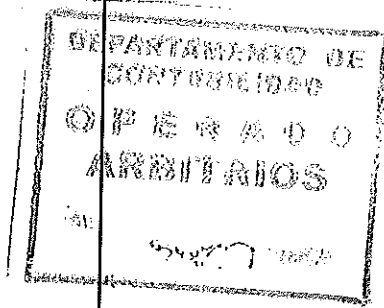 DEPARTAMENTO DE
CONTABILIDAD
OPERADO
ARBITAIOS